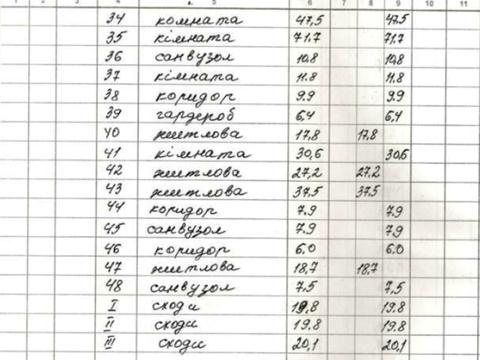 1 2 3 4 5 6 7 8 9 10 11
34 комната 47,5 47,5
35 кімната 71,7 71,7
36 санвузол 10,8 10,8
37 кімната 11.8 11.8
38 коридор 9.9 9.9
39 гардероб 6,4 6,4
40 житлова 17,8 17,8
41 кімната 30,6 30,6
42 житлова 27,2 27,2
43 житлова 37,5 37,5
44 коридор 7,9 7,9
45 санвузол 7,9 7,9
46 коридор 6,0 6,0
47 житлова 18,7 18,7
48 санвузол 7,5 7,5
I сходи 19,8 19.8
II сходи 19.8 19.8
III сходи 20,1 20,1